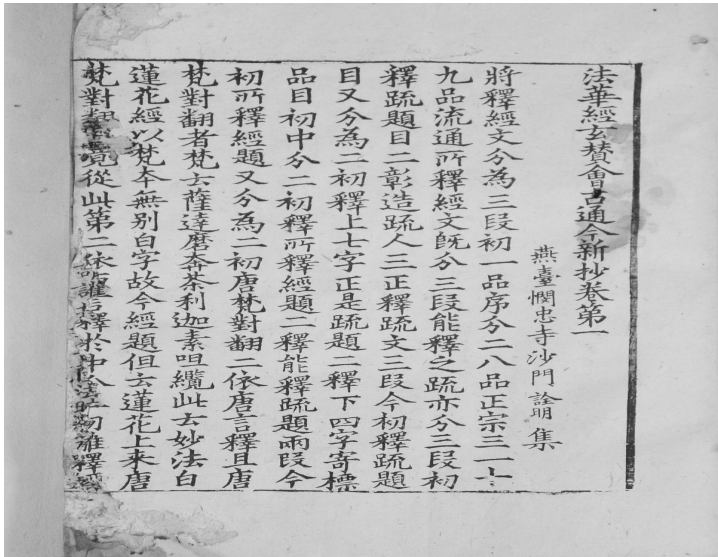 法華經玄賛會古通今新抄卷第一
燕臺憫忠寺沙門 詮明 集
將釋經文分為三段初一品序分二八品正宗三一十
九品流通所釋經文旣分三段能釋之疏亦分三段初
釋疏題目二彰造疏人三正釋疏文三段今初釋疏題
目又分為二初釋上七字正是疏題二釋下四字寄標
品目初中分二初釋所釋經題二釋能釋疏題兩段今
初所釋經題又分為二初唐梵對翻二依唐言釋且唐
梵對翻者梵云薩達磨奔荼利迦素呾纜此云妙法白
蓮花經以梵夲無别白字故今經題但云蓮花上來唐
梵對翻竟從此第二依 釋於中分 初離釋